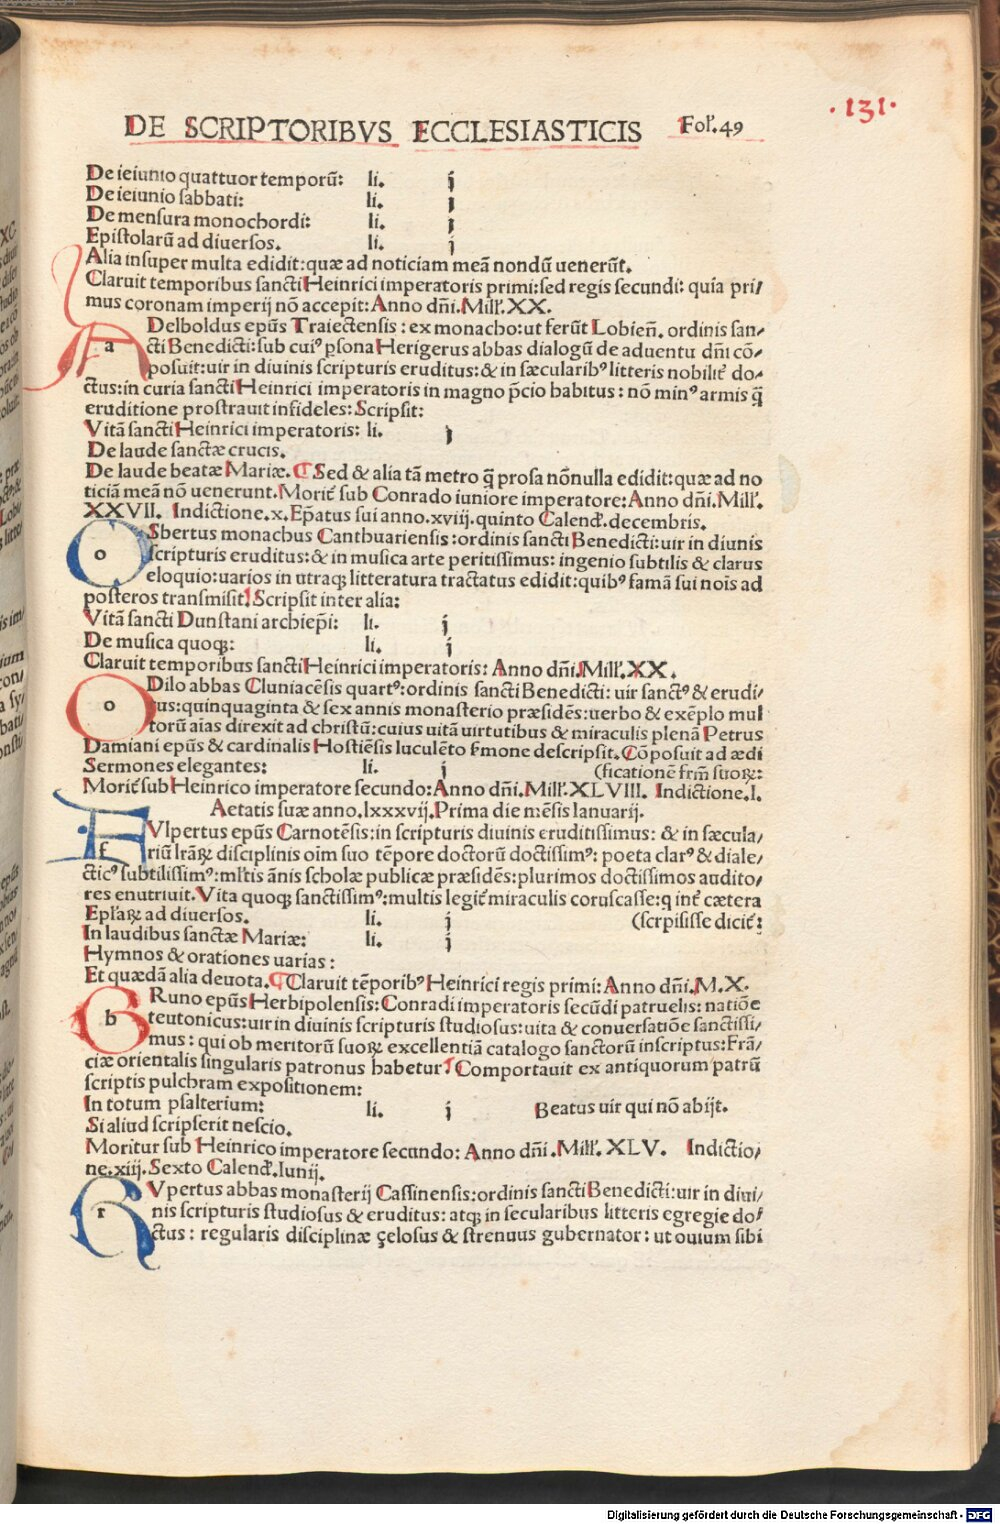 ·131·
DE SCRIPTORIBVS ECCLESIASTICIS Fol̕.49
De ieiunio quattuor temporū: li. j
De ieiunio ſabbati: li. j
De menſura monochordi: li. j
Epiſtolarū ad diuerſos. li. j
Alia inſuper multa edidit: quæ ad noticiam meā nondū uenerūt.
Claruit temporibus ſancti Heinrici imperatoris primi: ſed regis ſecundi: quia pri/
mus coronam imperij nō accepit: Anno dn̄i. Mill̕. XX.
a
ADelboldus ep̄us Traiectenſis: ex monacho: ut ferūt Lobieñ. ordinis ſan/
cti Benedicti: ſub cui⁹ ꝑſona Herigerus abbas dialogū de aduentu dn̄i cō/
poſuit: uir in diuinis ſcripturis eruditus: & in ſæcularib⁹ litteris nobilit̕ do/
ctus: in curia ſancti Heinrici imperatoris in magno p̄cio habitus: nō min⁹ armis q̄
eruditione proſtrauit infideles: Scripſit:
Vitā ſancti Heinrici imperatoris: li. j
De laude ſanctæ crucis.
De laude beatæ Mariæ. ¶ Sed & alia tā metro q̄ proſa nōnulla edidit: quæ ad no
ticiā meā nō uenerunt. Morit̕ ſub Conrado iuniore imperatore: Anno dn̄i. Mill̕.
XXVII. Indictione. x. Ep̄atus ſui anno. xviij. quinto Calend̕. decembris.
o
OSbertus monachus Canthuarienſis: ordinis ſancti Benedicti: uir in diunis
ſcripturis eruditus: & in muſica arte peritiſſimus: ingenio ſubtilis & clarus
eloquio: uarios in utraqꝫ litteratura tractatus edidit: quib⁹ famā ſui nois̄ ad
poſteros transmiſit. Scripſit inter alia:
Vitā ſancti Dunſtani archiep̄i: li. j
De muſica quoqꝫ: li. j
Claruit temporibus ſancti Heinrici imperatoris: Anno dn̄i. Mill̕. XX.
o
ODilo abbas Cluniacēſis quart⁹: ordinis ſancti Benedicti: uir ſanct⁹ & erudi/
tus: quinquaginta & ſex annis monaſterio præſidēs: uerbo & exēplo mul
torū aīas direxit ad chriſtū: cuius uitā uirtutibus & miraculis plenā Petrus
Damiani ep̄us & cardinalis Hoſtiēſis luculēto ſ̕mone deſcripſit. Cōpoſuit ad ædi
Sermones elegantes: li. j (ficationē frm̄ ſuoꝝ:
Morit̕ ſub Heinrico imperatore ſecundo: Anno dn̄i. Mill̕. XLVIII. Indictione. I.
Aetatis ſuæ anno. lxxxvij. Prima die mēſis Ianuarij.
f
FVlpertus ep̄us Carnotēſis: in ſcripturis diuinis eruditiſſimus: & in ſæcula/
riū lr̄aꝝ diſciplinis oīm ſuo tēpore doctorū doctiſſim⁹: poeta clar⁹ & diale/
ctic⁹ ſubtiliſſim⁹: ml̕tis ānis ſcholæ publicæ præſidēs: plurimos doctiſſimos audito/
res enutriuit. Vita quoqꝫ ſanctiſſim⁹: multis legit̕ miraculis coruſcaſſe: q int̕ cætera
Epl̕aꝝ ad diuerſos. li. j (ſcrpiſiſſe dicit̕:
In laudibus ſanctæ Mariæ: li. j
Hymnos & orationes uarias:
Et quædā alia deuota. ¶ Claruit tēporib⁹ Heinrici regis primi: Anno dn̄i. M. X.
b
BRuno ep̄us Herbipolenſis: Conradi imperatoris ſecūdi patruelis: natiōe
teutonicus: uir in diuinis ſcripturis ſtudioſus: uita & conuerſatiōe ſanctiſſi/
mus: qui ob meritorū ſuoꝝ excellentiā catalogo ſanctorū inſcriptus: Frā/
ciæ orientalis ſingularis patronus habetur. Comportauit ex antiquorum patrū
ſcriptis pulchram expoſitionem:
In totum pſalterium: li. j Beatus uir qui nō abijt.
Si aliud ſcripſerit neſcio.
Moritur ſub Heinrico imperatore ſecundo: Anno dn̄i. Mill̕. XLV. Indictio/
ne. xiij. Sexto Calend̕. Iunij.
r
RVpertus abbas monaſterij Caſſinenſis: ordinis ſancti Benedicti: uir in diui/
nis ſcripturis ſtudioſus & eruditus: atqꝫ in ſecularibus litteris egregie do/
ctus: regularis diſciplinæ çeloſus & ſtrenuus gubernator: ut ouium ſibi
Digitalisierung gefördert durch die Deutsche Forschungsgemeinschaft - DFG